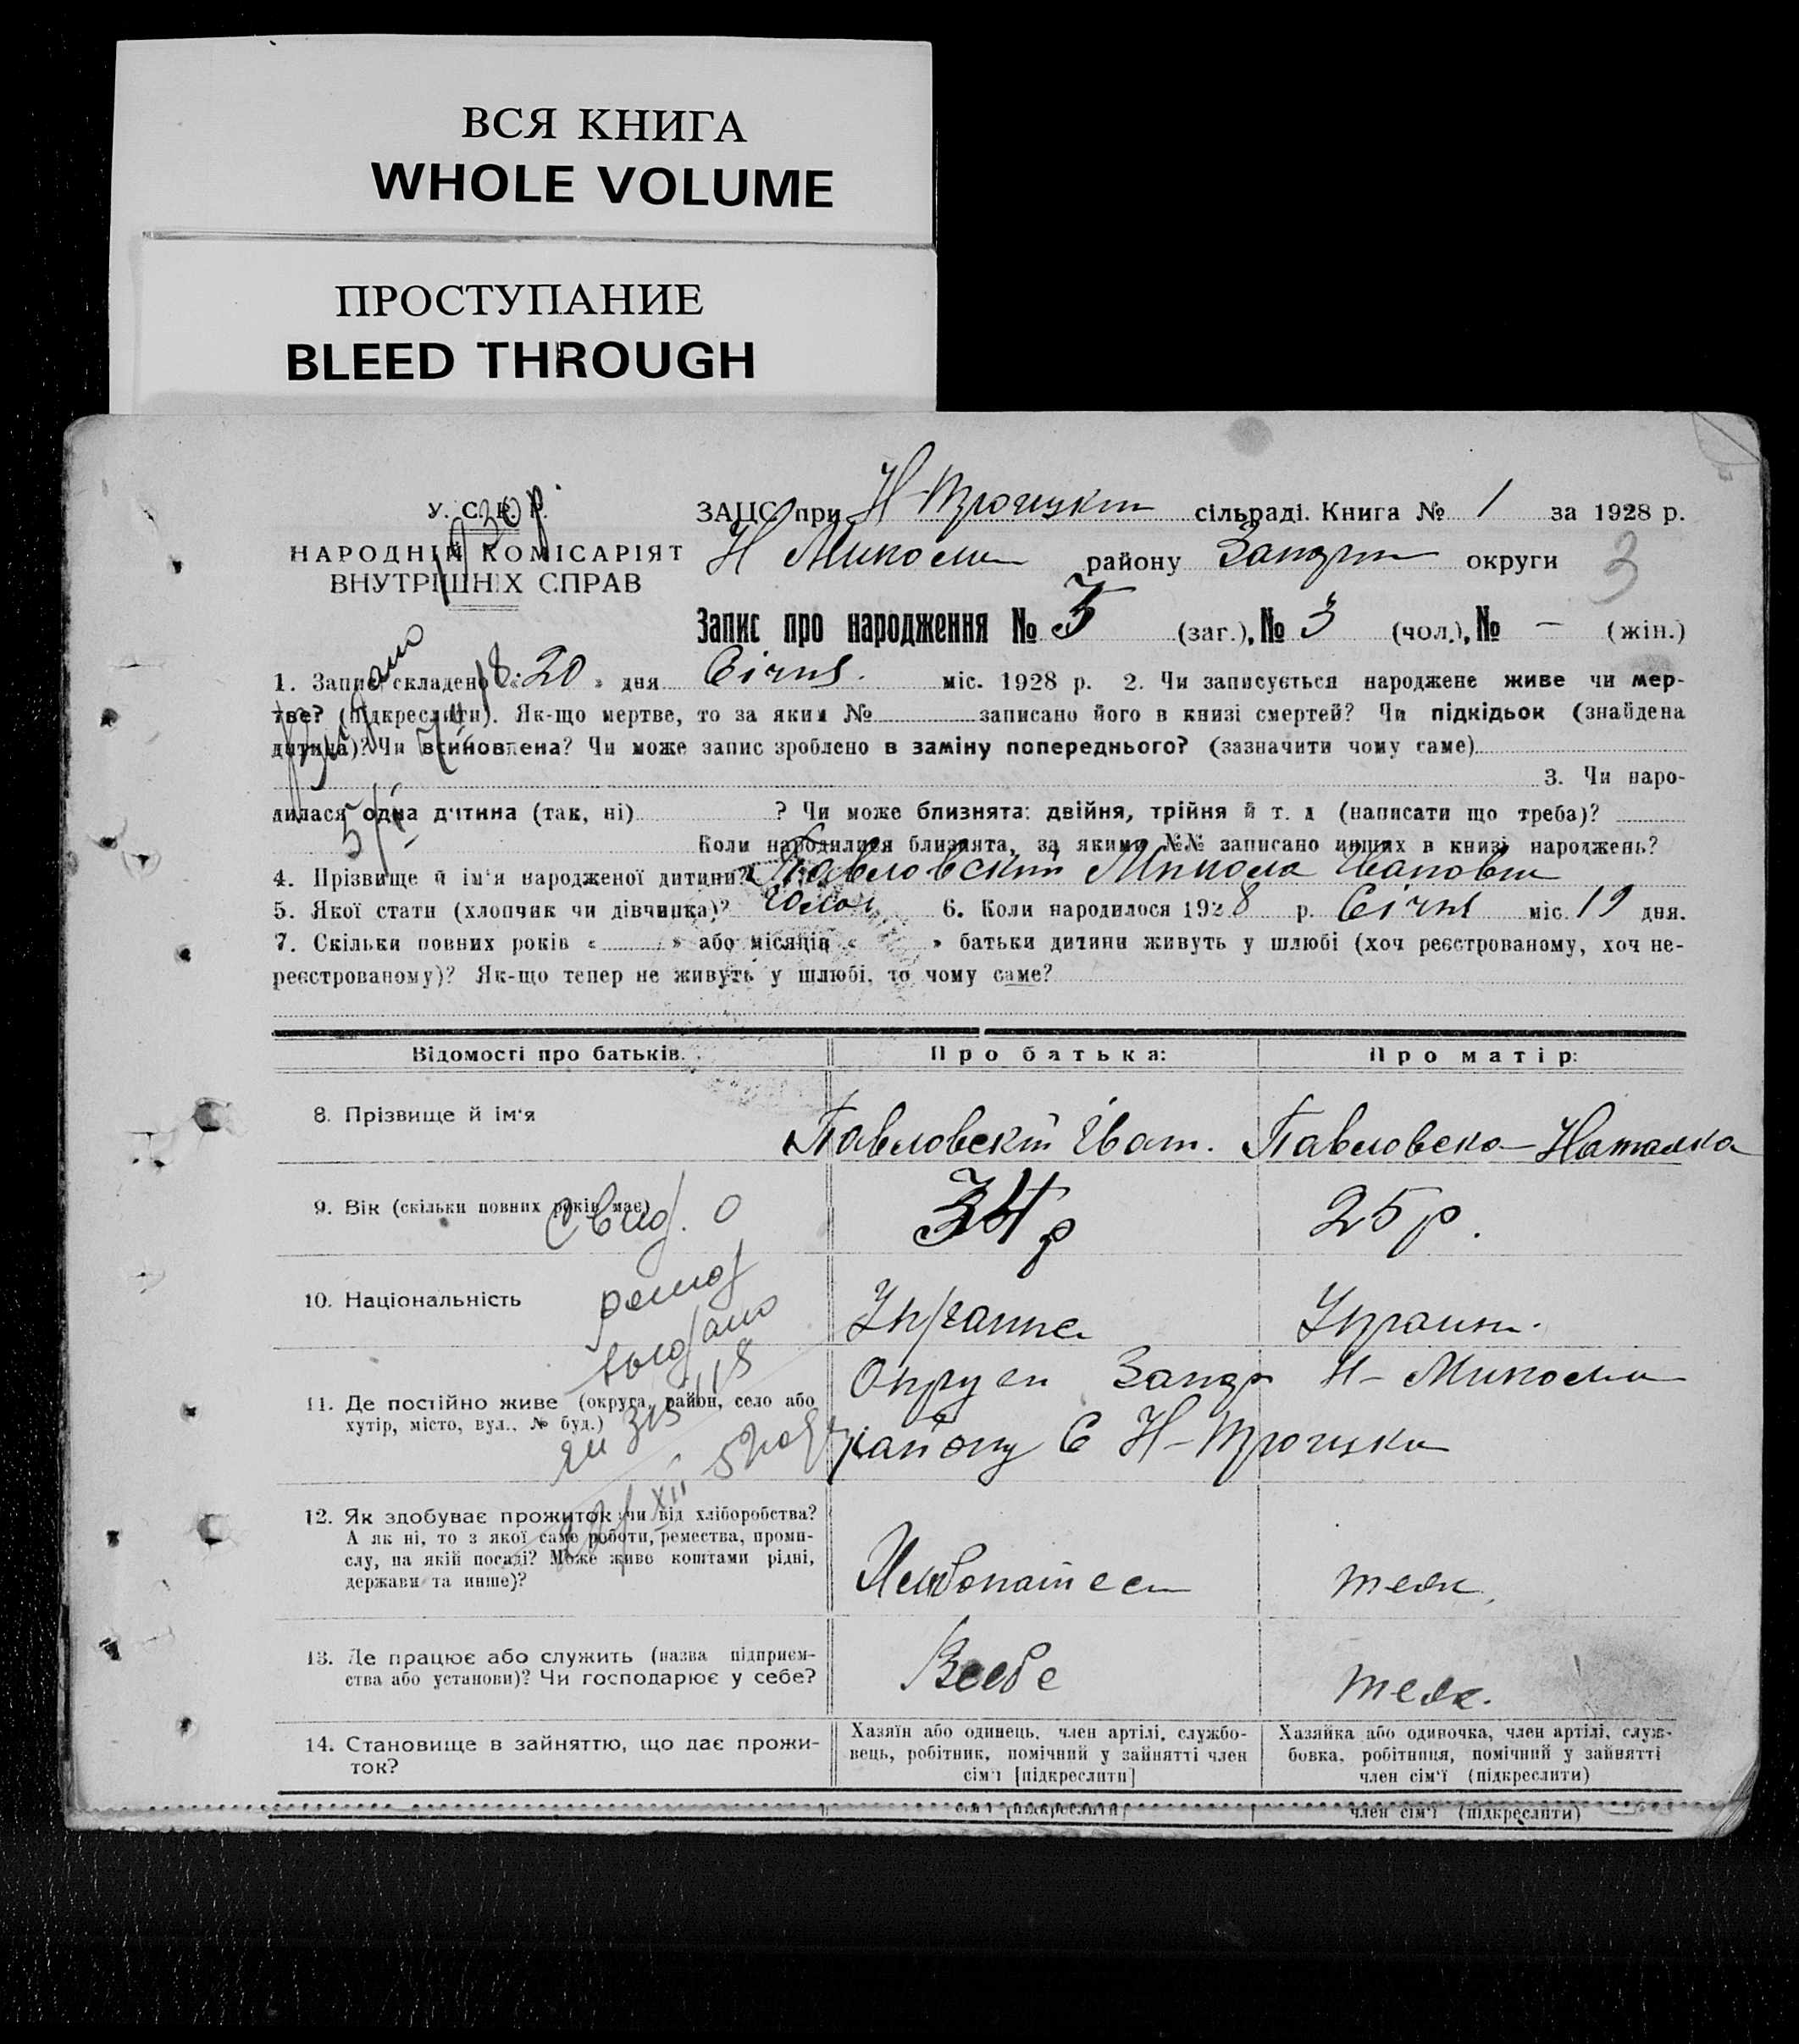 ВСЯ КНИГА
WHOLE VOLUME
ПРОСТУПАНИЕ
BLEED THROUGH
У. С. Р. Р.
НАРОДНІЙ КОМІСАРІЯТ
ВНУТРІШНІХ СПРАВ
ЗАЦС при Н-Троицкій сільраді. Книга № 1 за 1928 р.
Н Микол району Запор округи 3
Запис про народження № 5 (заг.), № 3 (чол.), № — (жін.)
1. Запис складено « 20 » дня Січня міс. 1928 р. 2. Чи записується народжене живе чи мер-
тве? (підкреслити). Як-що мертве, то за яким № записано його в книзі смертей? Чи підкідьок (знайдена
дитина)? Чи всиновлена? Чи може запис зроблено в заміну попереднього? (зазначити чому саме)
3. Чи наро-
дилася одна дитина (так, ні) ? Чи може близнята: двійня, трійня й т. д (написати що треба)?
Коли народилися близнята, за якими №№ записано инших в книзі народжень?
4. Прізвище й ім'я народженої дитини? Павловский Микола Иванови
5. Якої стати (хлопчик чи дівчинка)? 6. Коли народилося 1928 р. Січня міс. 19 дня.
7. Скільки повних років « » або місяців « » батьки дитини живуть у шлюбі (хоч реєстрованому, хоч не-
реєстрованому)? Як-що тепер не живуть у шлюбі, то чому саме?
Відомості про батьків. Про батька: Про матір:
8. Прізвище й ім'я Павловский Иван. Павловска Наталка
9. Вік (скільки повних років має) 34 р 25 р.
10. Національність Украинец Украин.
11. Де постійно живе (округа, район, село або Округи Запор Н-Микол
хутір, місто, вул., № буд.) району С Н-Троицки
12. Як здобуває прожиток чи від хліборобства?
А як ні, то з якої саме роботи, ремества, проми-
слу, на якій посаді? Може живе коштами рідні,
держави та инше)? теж.
13. Де працює або служить (назва підприєм-
ства або установи)? Чи господарює у себе? Всебе теж.
14. Становище в зайняттю, що дає прожи-
ток?
Хазяїн або одинець, член артілі, службо-
вець, робітник, помічний у зайнятті член
сім'ї [підкреслити]
Хазяйка або одиночка, член артілі, служ-
бовка, робітниця, помічний у зайнятті
член сім'ї (підкреслити)
сім'ї [підкреслити] член сім'ї (підкреслити)